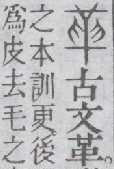 𠦶古文革。
之本訓更後
爲皮去毛之